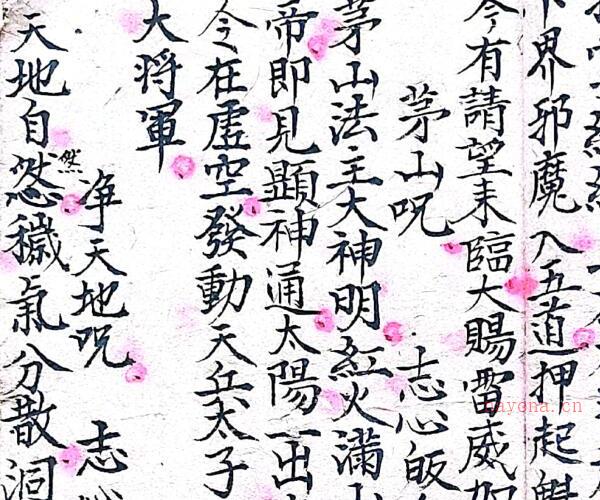 界邪魔入五道押起
今有請望来臨大賜雷威
茅山咒 志心皈
茅山法主大神明紅火滿
帝即見顕神通太陽一出
令在虚空發動天丘太子
大将軍
净天地咒 志
然
天地自然穢氣分散洞
nayona.cn